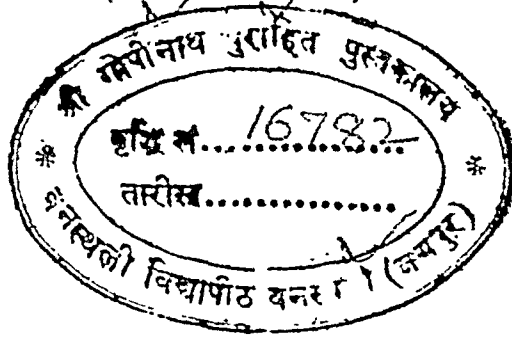 श्री गोपीनाथ पुरोहित पुस्तकालय
वृद्धि सं... 16782
तारीख................
* वनस्थली विद्यापीठ (जयपुर) *